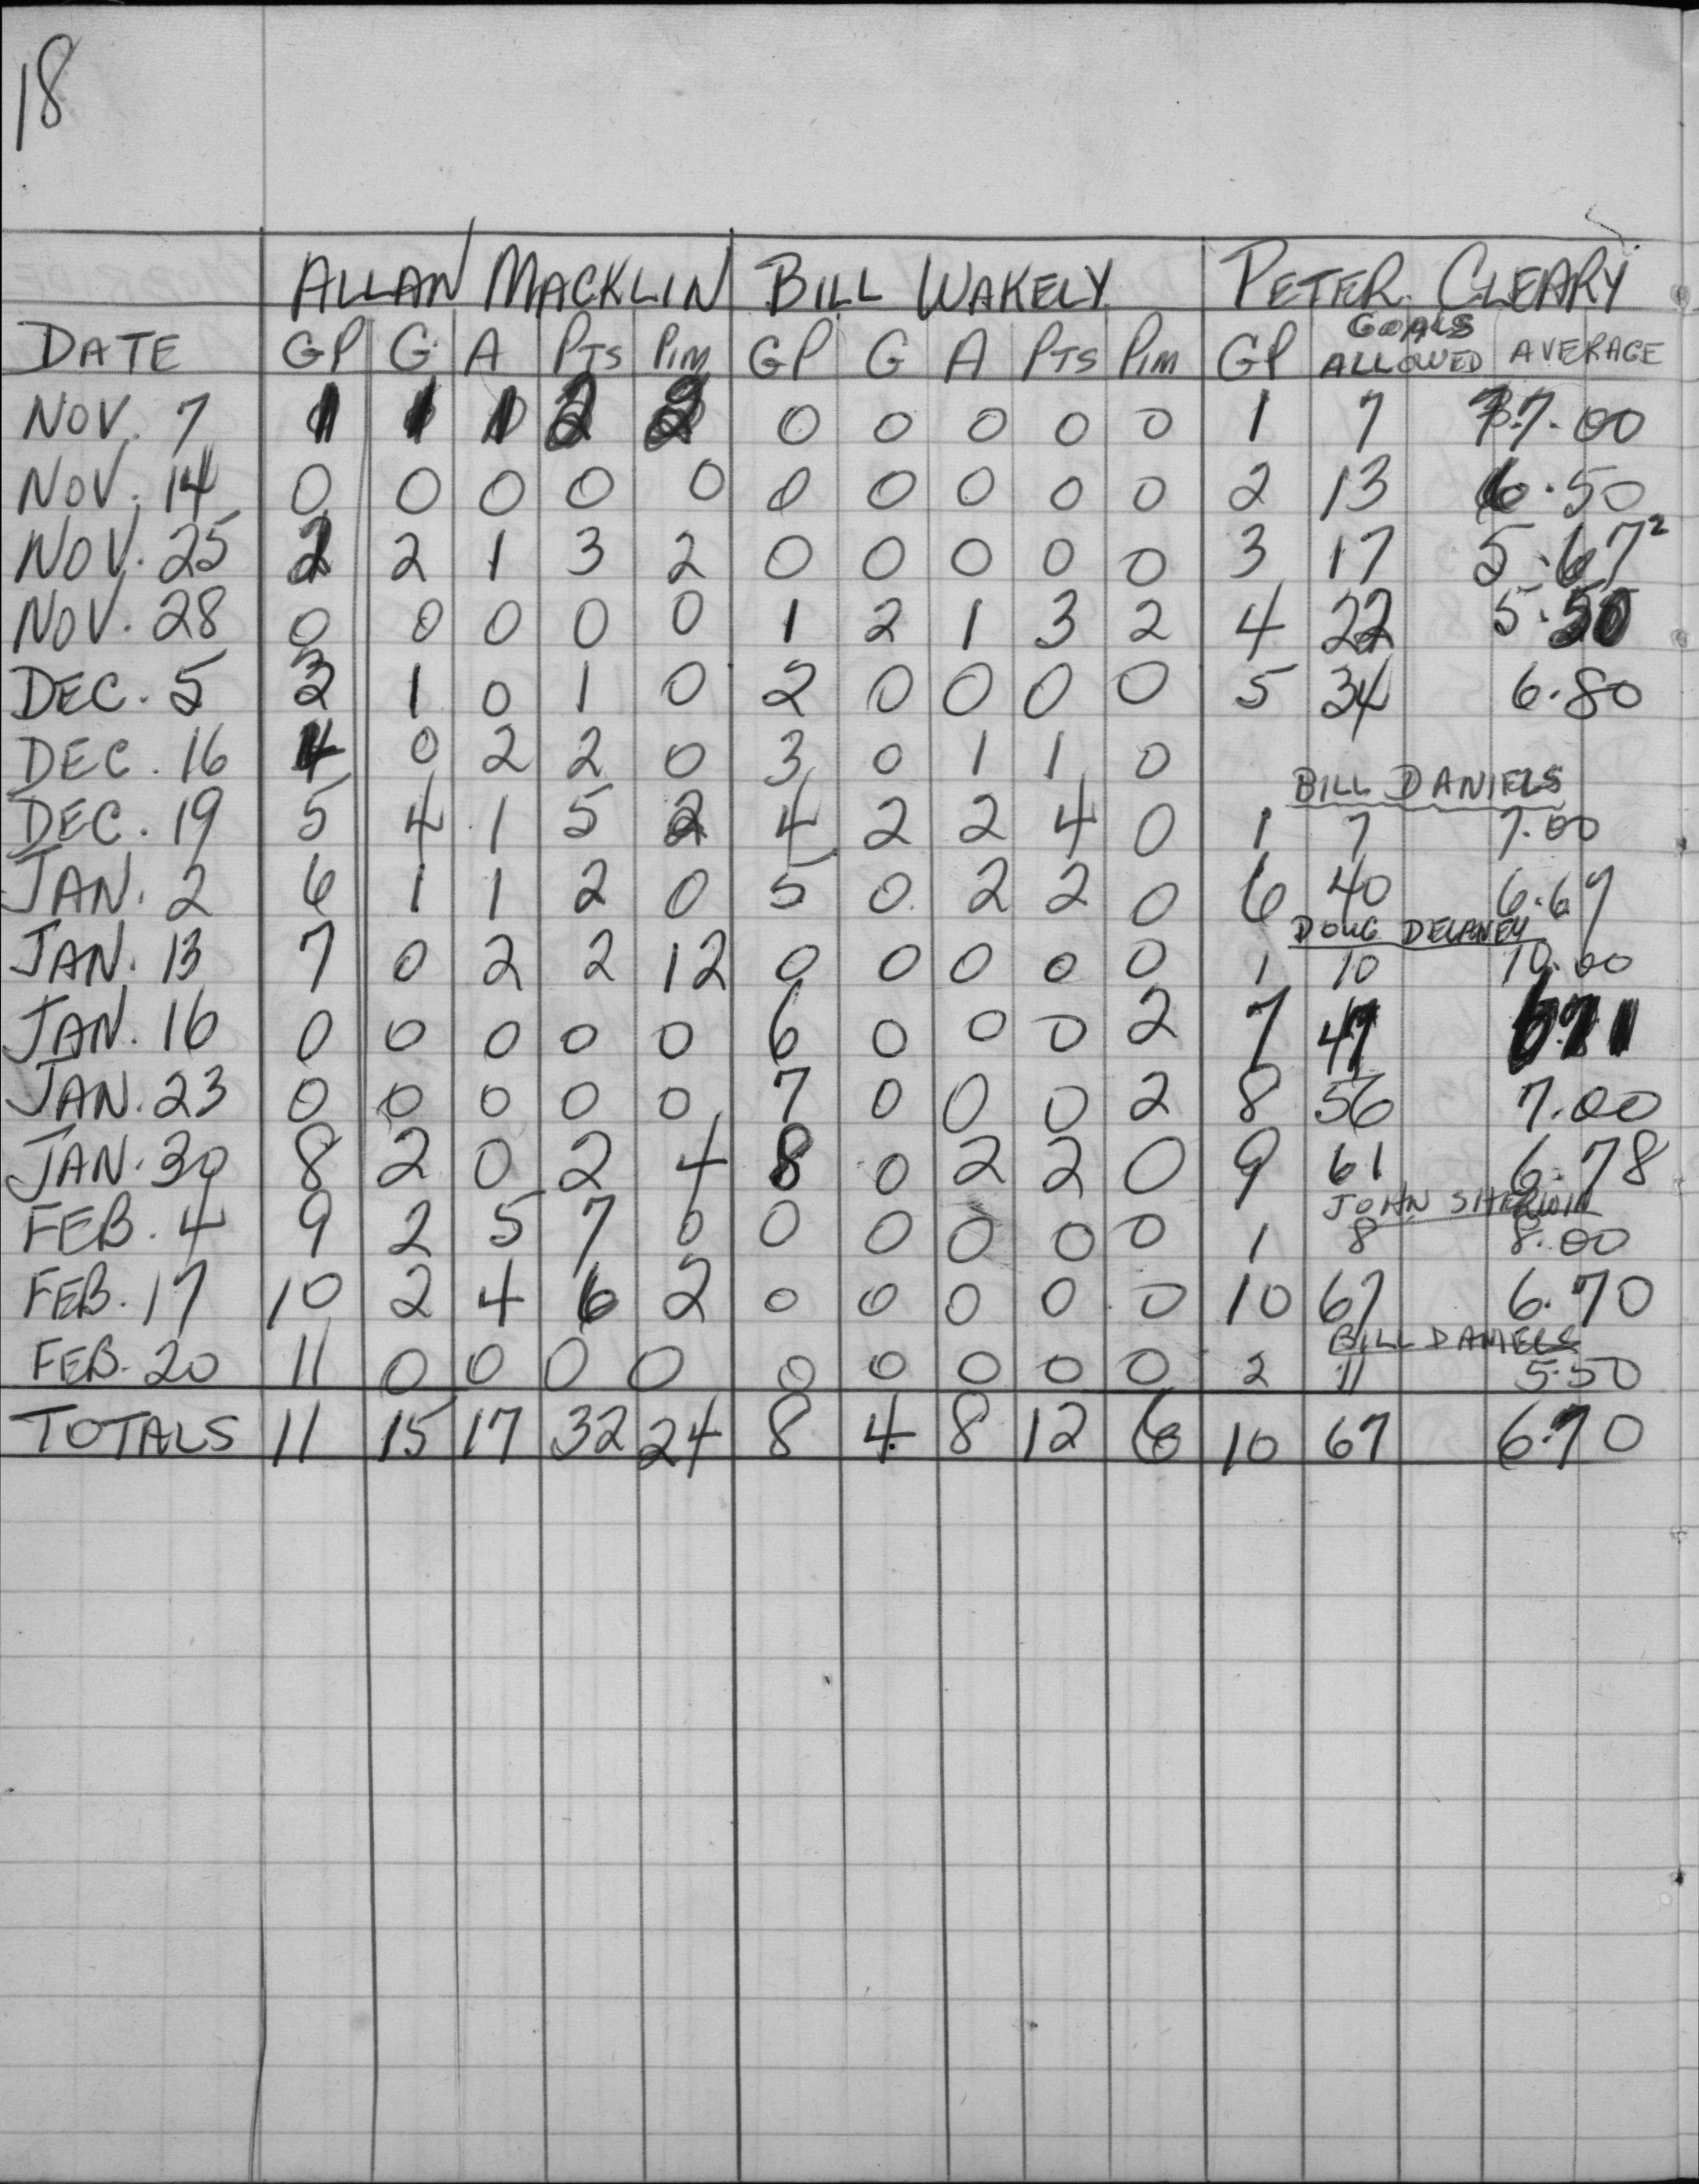 18
ALLAN MACKLIN BILL WAKELY PETER CLEARY
DATE GP G A PTS PIM GP G A PTS PIM GP GOALS ALLOWED AVERAGE
NOV. 7 1 1 1 2 2 0 0 0 0 0 1 7 7.00
NOV. 14 0 0 0 0 0 0 0 0 0 0 2 13 6.50
NOV. 25 2 2 1 3 2 0 0 0 0 0 3 17 5.67²
NOV. 28 0 0 0 0 0 1 2 1 3 2 4 22 5.50
DEC. 5 3 1 0 1 0 2 0 0 0 0 5 34 6.80
DEC. 16 4 0 2 2 0 3 0 1 1 0
BILL DANIELS
DEC. 19 5 4 1 5 2 4 2 2 4 0 1 7 7.00
JAN. 2 6 1 1 2 0 5 0 2 2 0 6 40 6.67
DOUG DELANEY
JAN. 13 7 0 2 2 12 0 0 0 0 0 1 10 10.00
JAN. 16 0 0 0 0 0 6 0 0 0 2 7 47 6.71
JAN. 23 0 0 0 0 0 7 0 0 0 2 8 56 7.00
JAN. 30 8 2 0 2 4 8 0 2 2 0 9 61 6.78
JOHN SHERWIN
FEB. 4 9 2 5 7 0 0 0 0 0 0 1 8 8.00
FEB. 17 10 2 4 6 2 0 0 0 0 0 10 67 6.70
BILL DANIELS
FEB. 20 11 0 0 0 0 0 0 0 0 0 2 11 5.50
TOTALS 11 15 17 32 24 8 4 8 12 6 10 67 6.70